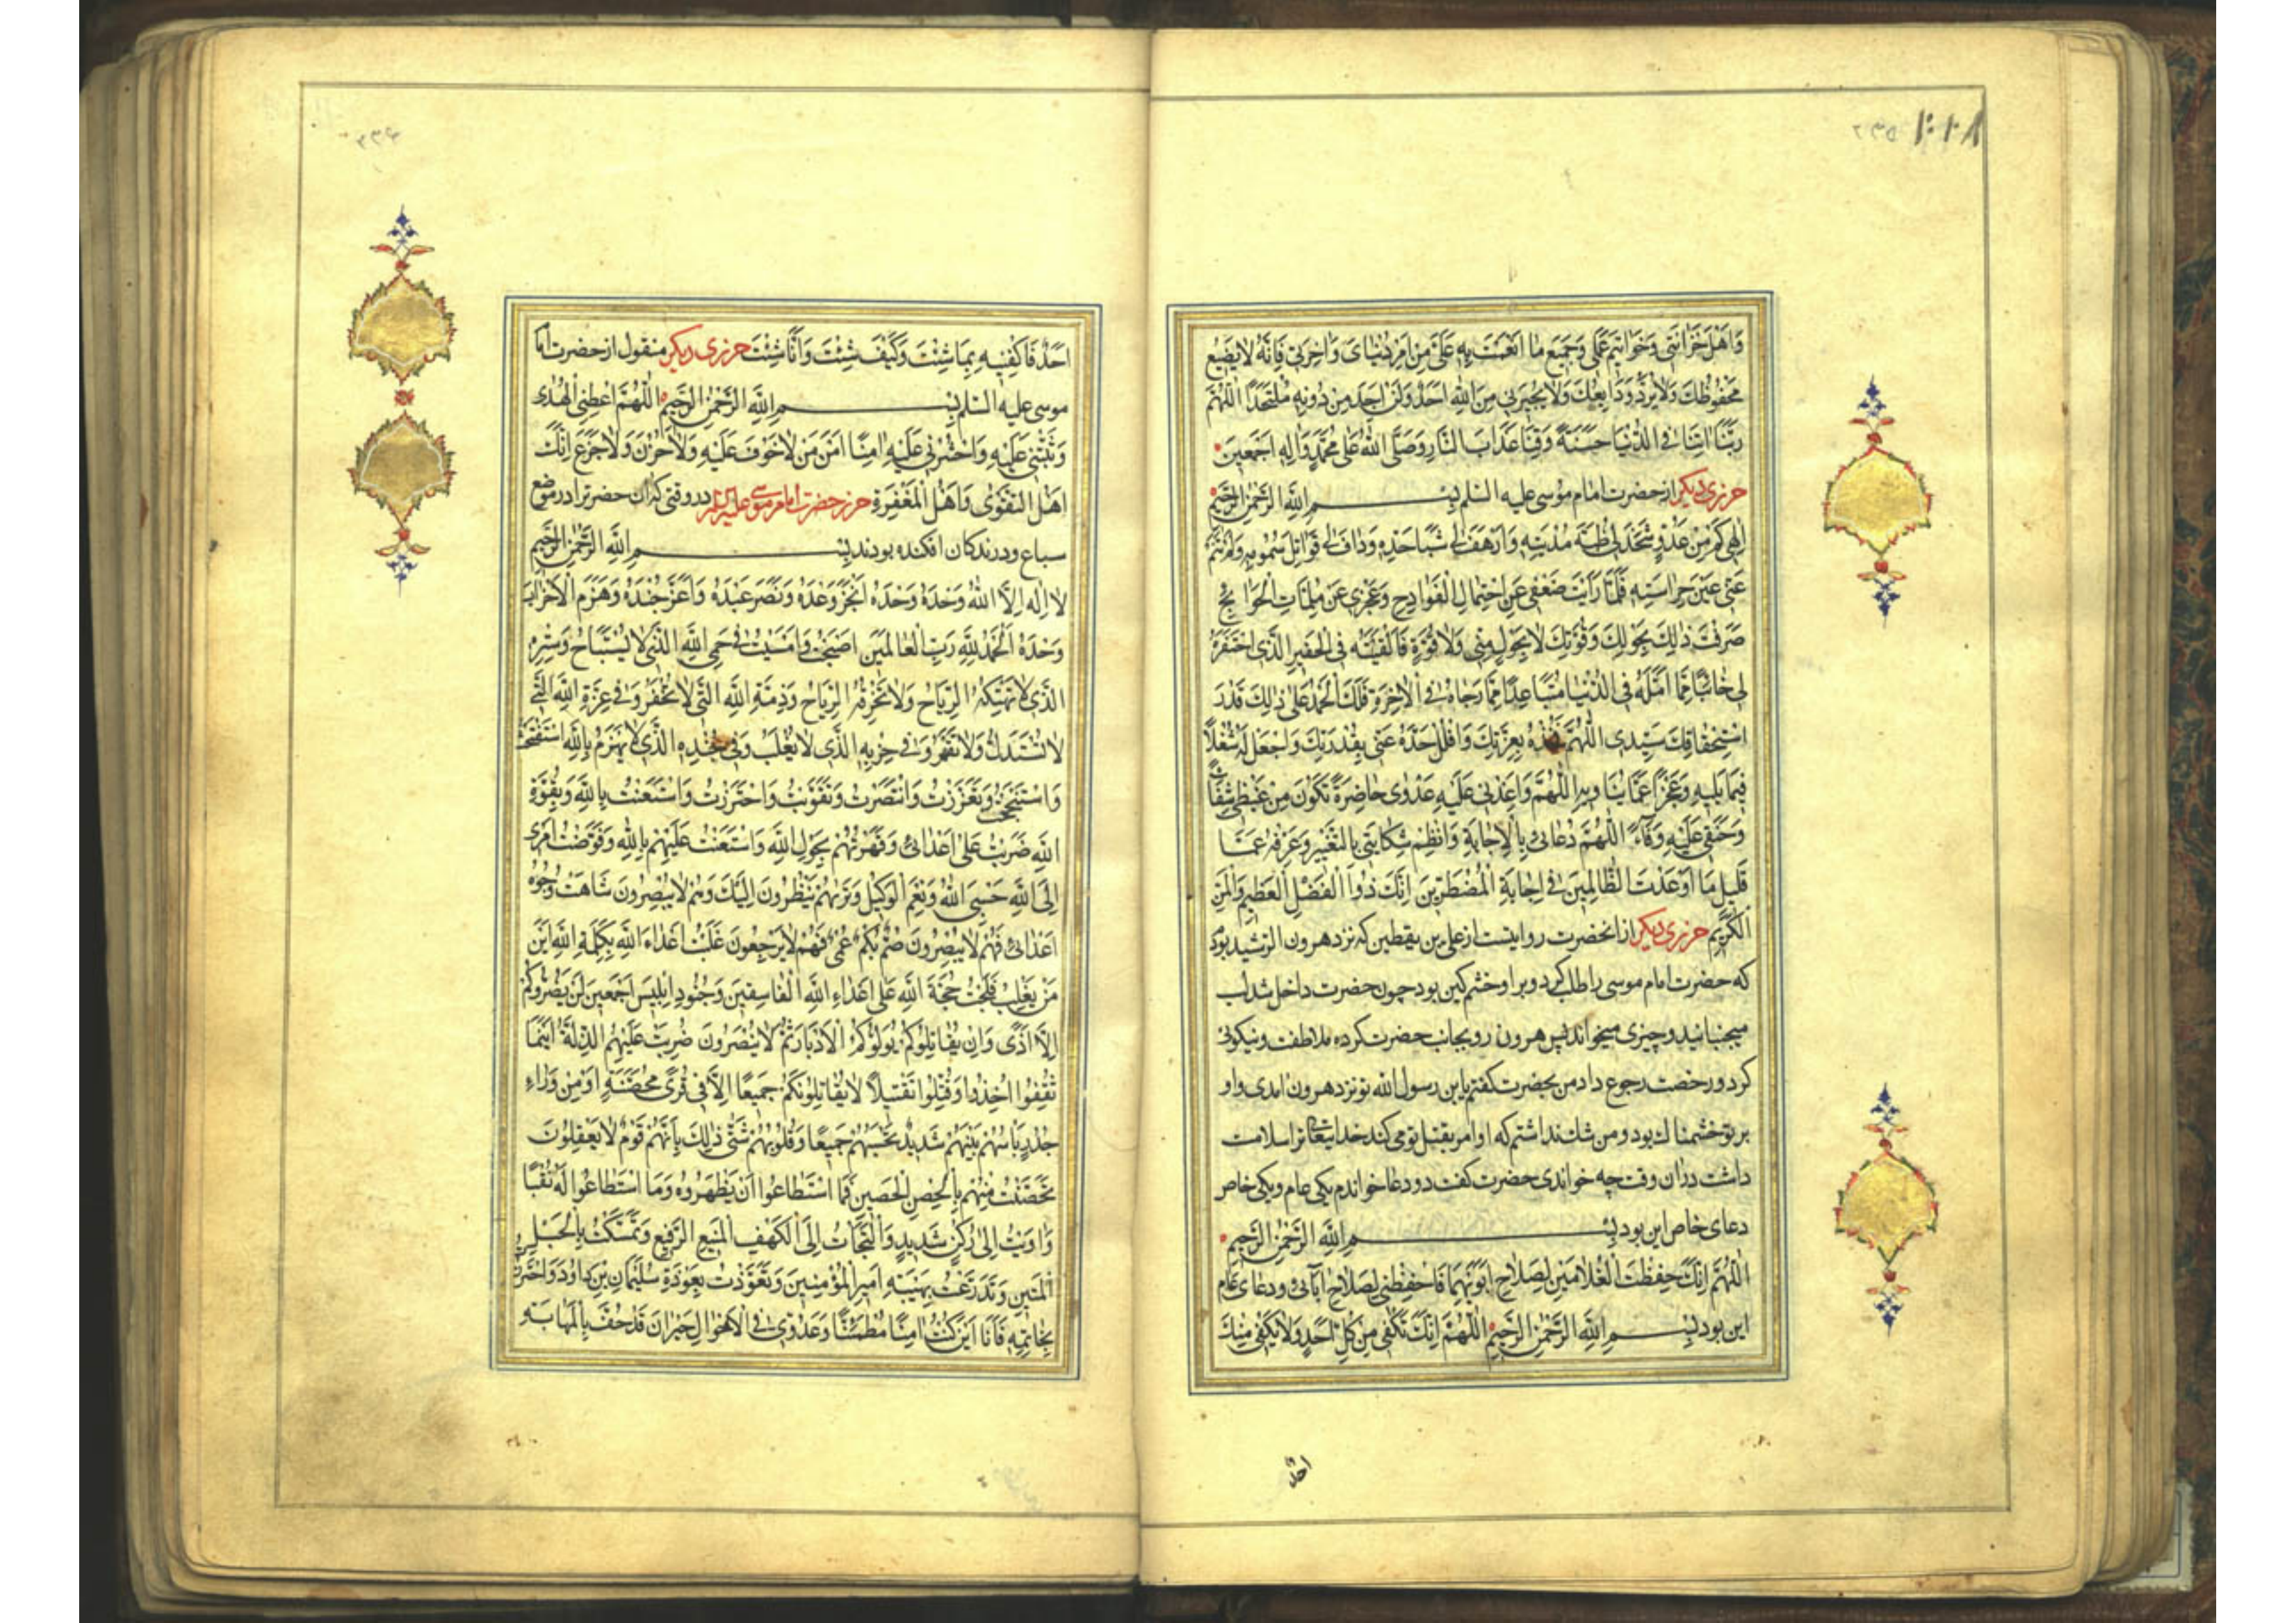 وَاَهْلَ حُزَانَتِی وَخَوَاتِيمَ عَمَلِی وَجَمِيعَ مَا اَنْعَمْتَ بِهِ عَلَيَّ مِنْ اَمْرِ دُنْيَايَ وَاٰخِرَتِی فَاِنَّهُ لَا يَضِيعُ
مَحْفُوظُكَ وَلَا تُرَدُّ وَدَايِعُكَ وَلَا يُجِيرُنِی مِنَ اللّٰهِ اَحَدٌ وَلَنْ اَجِدَ مِنْ دُونِهِ مُلْتَحَدًا اَللّٰهُمَّ
رَبَّنَا اٰتِنَا فِی الدُّنْيَا حَسَنَةً وَقِنَا عَذَابَ النَّارِ وَصَلَّی اللّٰهُ عَلٰی مُحَمَّدٍ وَاٰلِهِ اَجْمَعِينَ
حرزی دیکر از حضرت امام موسی علیه السلم بِسْمِ اللّٰهِ الرَّحْمٰنِ الرَّحِيمِ
اِلٰهِی كَمْ مِنْ عَدُوٍّ شَحَذَ لِی ظُبَةَ مُدْيَتِهِ وَاَرْهَفَ لِی شَبَا حَدِّهِ وَدَافَ لِی قَوَاتِلَ سُمُومِهِ وَلَمْ تَنَمْ
عَنِّی عَيْنُ حِرَاسَتِهِ فَلَمَّا رَاَيْتَ ضَعْفِی عَنِ احْتِمَالِ الْفَوَادِحِ وَعَجْزِی عَنْ مُلِمَّاتِ الْحَوَايِجِ
صَرَفْتَ ذٰلِكَ بِحَوْلِكَ وَقُوَّتِكَ لَا بِحَوْلٍ مِنِّی وَلَا قُوَّةٍ فَاَلْقَيْتَهُ فِی الْحَفِيرِ الَّذِی احْتَفَرَهُ
لِی خَائِبًا مِمَّا اَمَّلَهُ فِی الدُّنْيَا مُتَبَاعِدًا مِمَّا رَجَاهُ فِی الْاٰخِرَةِ فَلَكَ الْحَمْدُ عَلٰی ذٰلِكَ قَدْرَ
اسْتِحْقَاقِكَ سَيِّدِی اَللّٰهُمَّ فَخُذْهُ بِعِزَّتِكَ وَافْلُلْ حَدَّهُ عَنِّی بِقُدْرَتِكَ وَاجْعَلْ لَهُ شُغْلًا
فِيمَا يَلِيهِ وَعَجْزًا عَمَّا يُنَاوِيهِ اَللّٰهُمَّ وَاَعِدْنِی عَلَيْهِ عَدْوٰی حَاضِرَةً تَكُونُ مِنْ غَيْظِی شِفَاءً
وَحَنَقِی عَلَيْهِ وَفَاءً اَللّٰهُمَّ دُعَائِی بِالْاِجَابَةِ وَانْظِمْ شِكَايَتِی بِالتَّغْيِيرِ وَعَرِّفْهُ عَمَّا
قَلِيلٍ مَا اَوْعَدْتَ الظَّالِمِينَ فِی اِجَابَةِ الْمُضْطَرِّينَ اِنَّكَ ذُو الْفَضْلِ الْعَظِيمِ وَالْمَنِّ
الْكَرِيمِ حرزی دیکر از انحضرت روایتست از علی بن یقطین که نزد هرون الرشید بود
که حضرت امام موسی را طلب کرد و بر او خشم کین بود چون حضرت داخل شد لب
میجنبانید و چیزی میخواند پس هرون رو بجانب حضرت کرده ملاطفت و نیکوئی
کرد و رخصت رجوع داد من بحضرت کفتم یابن رسول الله تو نزد هرون امدی و او
بر تو خشمناک بود و من شک نداشتم که او امر بقتل تو می کند خدایتعالی ترا سلامت
داشت دران وقت چه خواندی حضرت کفت دو دعا خواندم یکی عام و یکی خاص
دعای خاص این بود بِسْمِ اللّٰهِ الرَّحْمٰنِ الرَّحِيمِ
اَللّٰهُمَّ اِنَّكَ حَفِظْتَ الْغُلَامَيْنِ لِصَلَاحِ اَبَوَيْهِمَا فَاحْفِظْنِی لِصَلَاحِ اٰبَائِی و دعای عام
این بود بِسْمِ اللّٰهِ الرَّحْمٰنِ الرَّحِيمِ اَللّٰهُمَّ اِنَّكَ تَكْفِی مِنْ كُلِّ اَحَدٍ وَلَا يَكْفِی مِنْكَ
احد
اَحَدٌ فَاكْفِنِيهِ بِمَا شِئْتَ وَكَيْفَ شِئْتَ وَاَنّٰی شِئْتَ حرزی دیکر منقول از حضرت اما
موسی علیه السلم بِسْمِ اللّٰهِ الرَّحْمٰنِ الرَّحِيمِ اَللّٰهُمَّ اَعْطِنِی الْهُدٰی
وَثَبِّتْنِی عَلَيْهِ وَاحْشُرْنِی عَلَيْهِ اٰمِنًا اَمْنَ مَنْ لَا خَوْفَ عَلَيْهِ وَلَا حُزْنَ وَلَا جَزَعَ اِنَّكَ
اَهْلُ التَّقْوٰی وَاَهْلُ الْمَغْفِرَةِ حرز حضرت امام موسی علیه السلم در وقتی که ان حضرترا در موضع
سباع و درندکان افکنده بودند بِسْمِ اللّٰهِ الرَّحْمٰنِ الرَّحِيمِ
لَا اِلٰهَ اِلَّا اللّٰهُ وَحْدَهُ وَحْدَهُ وَحْدَهُ اَنْجَزَ وَعْدَهُ وَنَصَرَ عَبْدَهُ وَاَعَزَّ جُنْدَهُ وَهَزَمَ الْاَحْزَابَ
وَحْدَهُ اَلْحَمْدُ لِلّٰهِ رَبِّ الْعَالَمِينَ اَصْبَحْتُ وَاَمْسَيْتُ فِی حِمَی اللّٰهِ الَّذِی لَا يُسْتَبَاحُ وَسِتْرِهِ
الَّذِی لَا تَهْتِكُهُ الرِّيَاحُ وَلَا تَخْرِقُهُ الرِّيَاحُ وَذِمَّةِ اللّٰهِ الَّتِی لَا تُخْفَرُ وَفِی عِزَّةِ اللّٰهِ الَّتِی
لَا تُسْتَذَلُّ وَلَا تُقْهَرُ وَفِی حِزْبِهِ الَّذِی لَا يُغْلَبُ وَفِی جُنْدِهِ الَّذِی لَا يُهْزَمُ بِاللّٰهِ اسْتَفْتَحْتُ
وَاسْتَنْجَحْتُ وَتَعَزَّزْتُ وَانْتَصَرْتُ وَتَقَوَّيْتُ وَاحْتَرَزْتُ وَاسْتَعَنْتُ بِاللّٰهِ وَبِقُوَّةِ
اللّٰهِ ضَرَبْتُ عَلٰی اَعْدَائِی وَقَهَرْتُهُمْ بِحَوْلِ اللّٰهِ وَاسْتَعَنْتُ عَلَيْهِمْ بِاللّٰهِ وَفَوَّضْتُ اَمْرِی
اِلَی اللّٰهِ حَسْبِیَ اللّٰهُ وَنِعْمَ الْوَكِيلُ وَتَرٰيهُمْ يَنْظُرُونَ اِلَيْكَ وَهُمْ لَا يُبْصِرُونَ شَاهَتْ وُجُوهُ
اَعْدَائِی فَهُمْ لَا يُبْصِرُونَ صُمٌّ بُكْمٌ عُمْیٌ فَهُمْ لَا يَرْجِعُونَ غَلَبْتُ اَعْدَاءَ اللّٰهِ بِكَلِمَةِ اللّٰهِ اَيْنَ
مَنْ يَغْلِبُ فَلَجَتْ حُجَّةُ اللّٰهِ عَلٰی اَعْدَاءِ اللّٰهِ الْفَاسِقِينَ وَجُنُودِ اِبْلِيسَ اَجْمَعِينَ لَنْ يَضُرُّوكُمْ
اِلَّا اَذًی وَاِنْ يُقَاتِلُوكُمْ يُوَلُّوكُمُ الْاَدْبَارَ ثُمَّ لَا يُنْصَرُونَ ضُرِبَتْ عَلَيْهِمُ الذِّلَّةُ اَيْنَمَا
ثُقِفُوا اُخِذُوا وَقُتِّلُوا تَقْتِيلًا لَا يُقَاتِلُونَكُمْ جَمِيعًا اِلَّا فِی قُرًی مُحَصَّنَةٍ اَوْ مِنْ وَرَاءِ
جُدُرٍ بَاْسُهُمْ بَيْنَهُمْ شَدِيدٌ تَحْسَبُهُمْ جَمِيعًا وَقُلُوبُهُمْ شَتّٰی ذٰلِكَ بِاَنَّهُمْ قَوْمٌ لَا يَعْقِلُونَ
تَحَصَّنْتُ مِنْهُمْ بِالْحِصْنِ الْحَصِينِ فَمَا اسْتَطَاعُوا اَنْ يَظْهَرُوهُ وَمَا اسْتَطَاعُوا لَهُ نَقْبًا
وَاٰوَيْتُ اِلٰی رُكْنٍ شَدِيدٍ وَالْتَجَاْتُ اِلَی الْكَهْفِ الْمَنِيعِ الرَّفِيعِ وَتَمَسَّكْتُ بِالْحَبْلِ
الْمَتِينِ وَتَدَرَّعْتُ بِهَيْبَةِ اَمِيرِ الْمُؤْمِنِينَ وَتَعَوَّذْتُ بِعُوذَةِ سُلَيْمَانَ بْنِ دَاوُدَ وَاحْتَرَزْتُ
بِخَاتَمِهِ فَاَنَا اَيْنَ كُنْتُ اٰمِنًا مُطْمَئِنًّا وَعَدُوِّی فِی الْاَهْوَالِ حَيْرَانَ قَدْ حُفَّ بِالْمَهَابَةِ